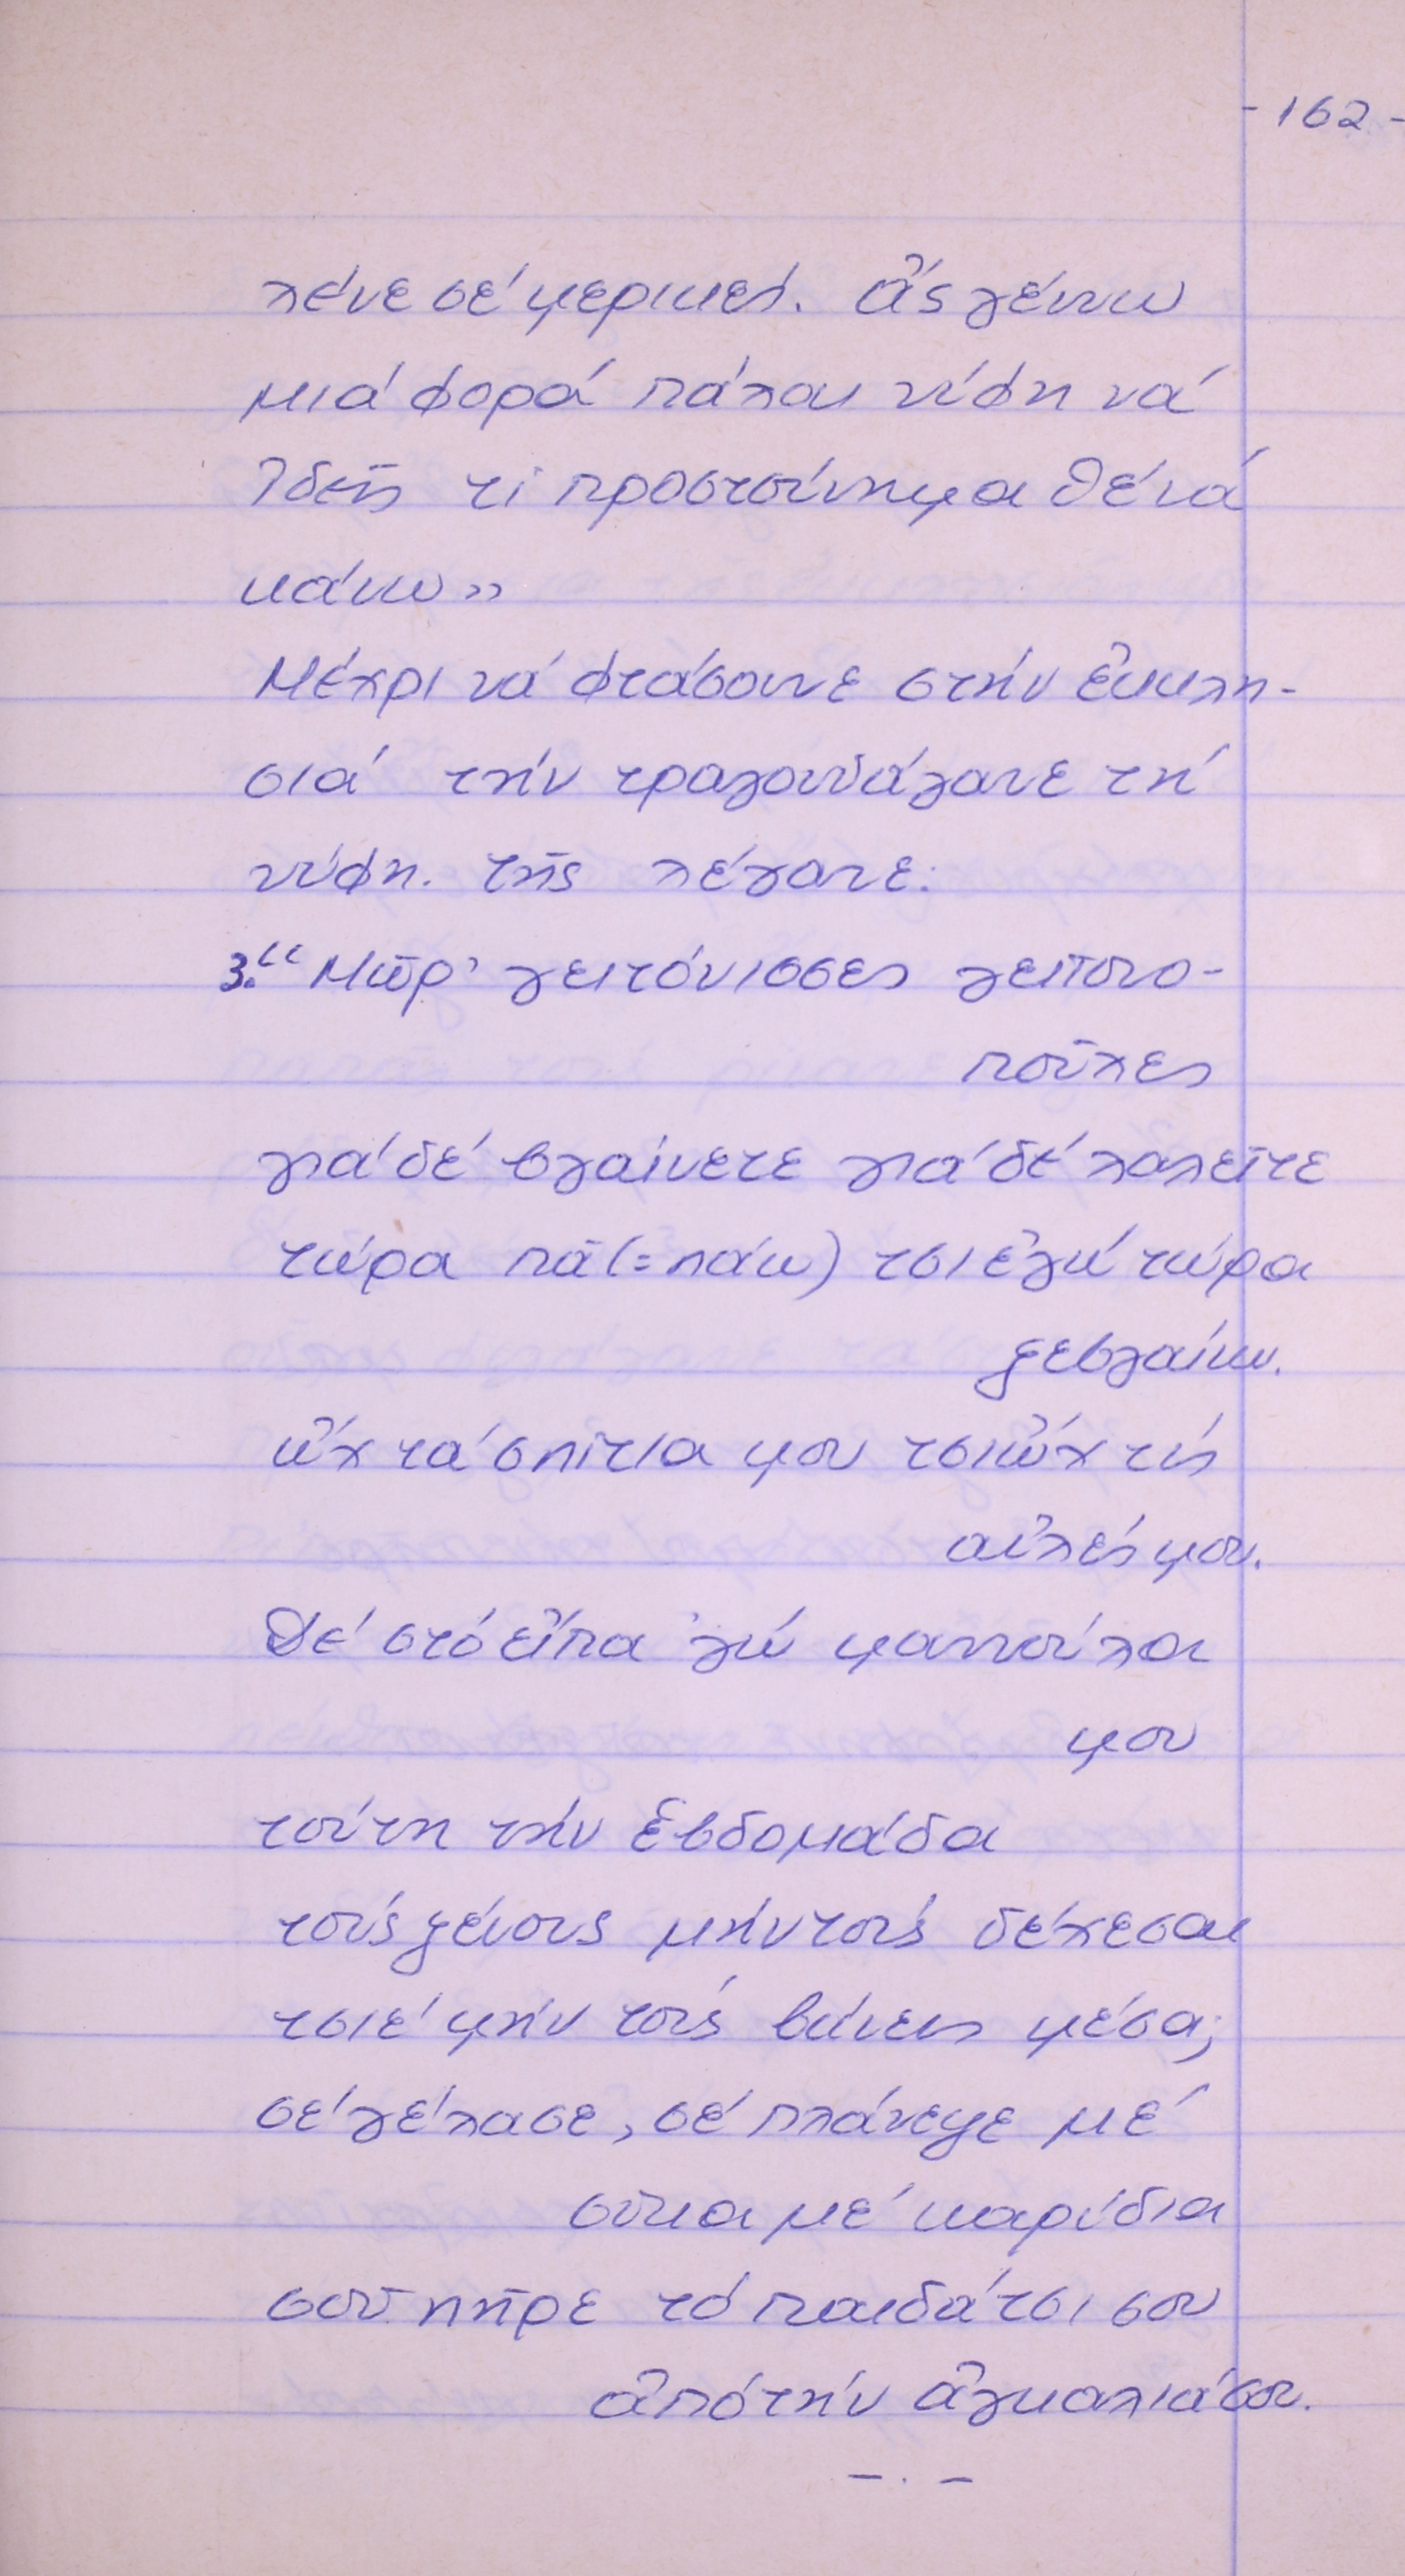 - 162 -
λένε σέ μερικές. Ἄς γένω
μιά φορά πάλαι νύφη νά
ἰδῆς τί προστσύνημα θέ νά
κάνω»
Μέχρι νά φτάσουνε στήν ἐκκλη-
σιά τήν τραγουδάγανε τή
νύφη. τῆς λέγανε:
3. "Μωρ' γειτόνισσες γειτονο-
ποῦλες
γιά δέ βγαίνετε γιά δέ λαλεῖτε
τώρα πᾶ (= πάω) τσι ἐγώ τώρα
ξεβγαίνω.
ὤχ τά σπίτια μου τσι ὤχ τίς
αὐλές μου.
Δέ στό εἶπα 'γώ μαννούλα
μου
τούτη τήν ἑβδομάδα
τούς ξένους μήν τούς δέχεσαι
τσιέ μήν τούς βάνεις μέσα;
σέ γέλασε, σέ πλάνεψε μέ
σῦκα μέ καρύδια
σοῦ πῆρε τό παιδάτσι σου
ἀπό τήν ἀγκαλιά σου.
- . -